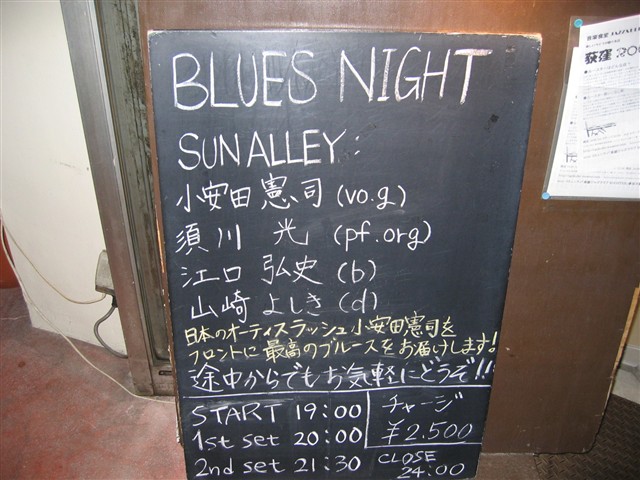 BLUES NIGHT
SUNALLEY:
小安田 憲司 (vo.g)
須川 光 (pf.org)
江口 弘史 (b)
山崎 よしき (d)
日本のオーティスラッシュ小安田憲司を
フロントに最高のブルースをお届けします!
途中からでもお気軽にどうぞ!!
START 19:00
1st set 20:00
2nd set 21:30
チャージ
¥2,500
CLOSE
24:00
荻窪